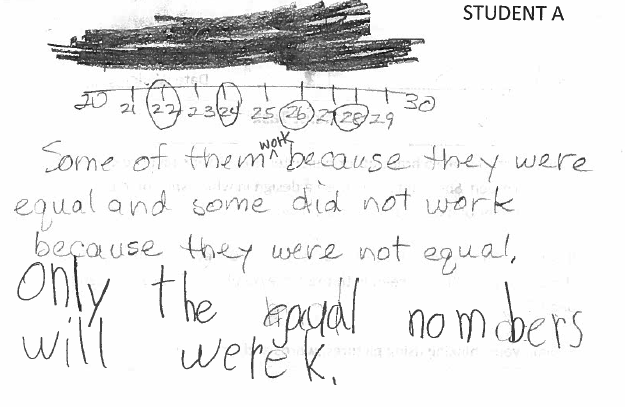 STUDENT A
20 21 22 23 24 25 26 27 28 29 30
Some of them work because they were
equal and some did not work
because they were not equal.
Only the eqaul nombers
will werek.